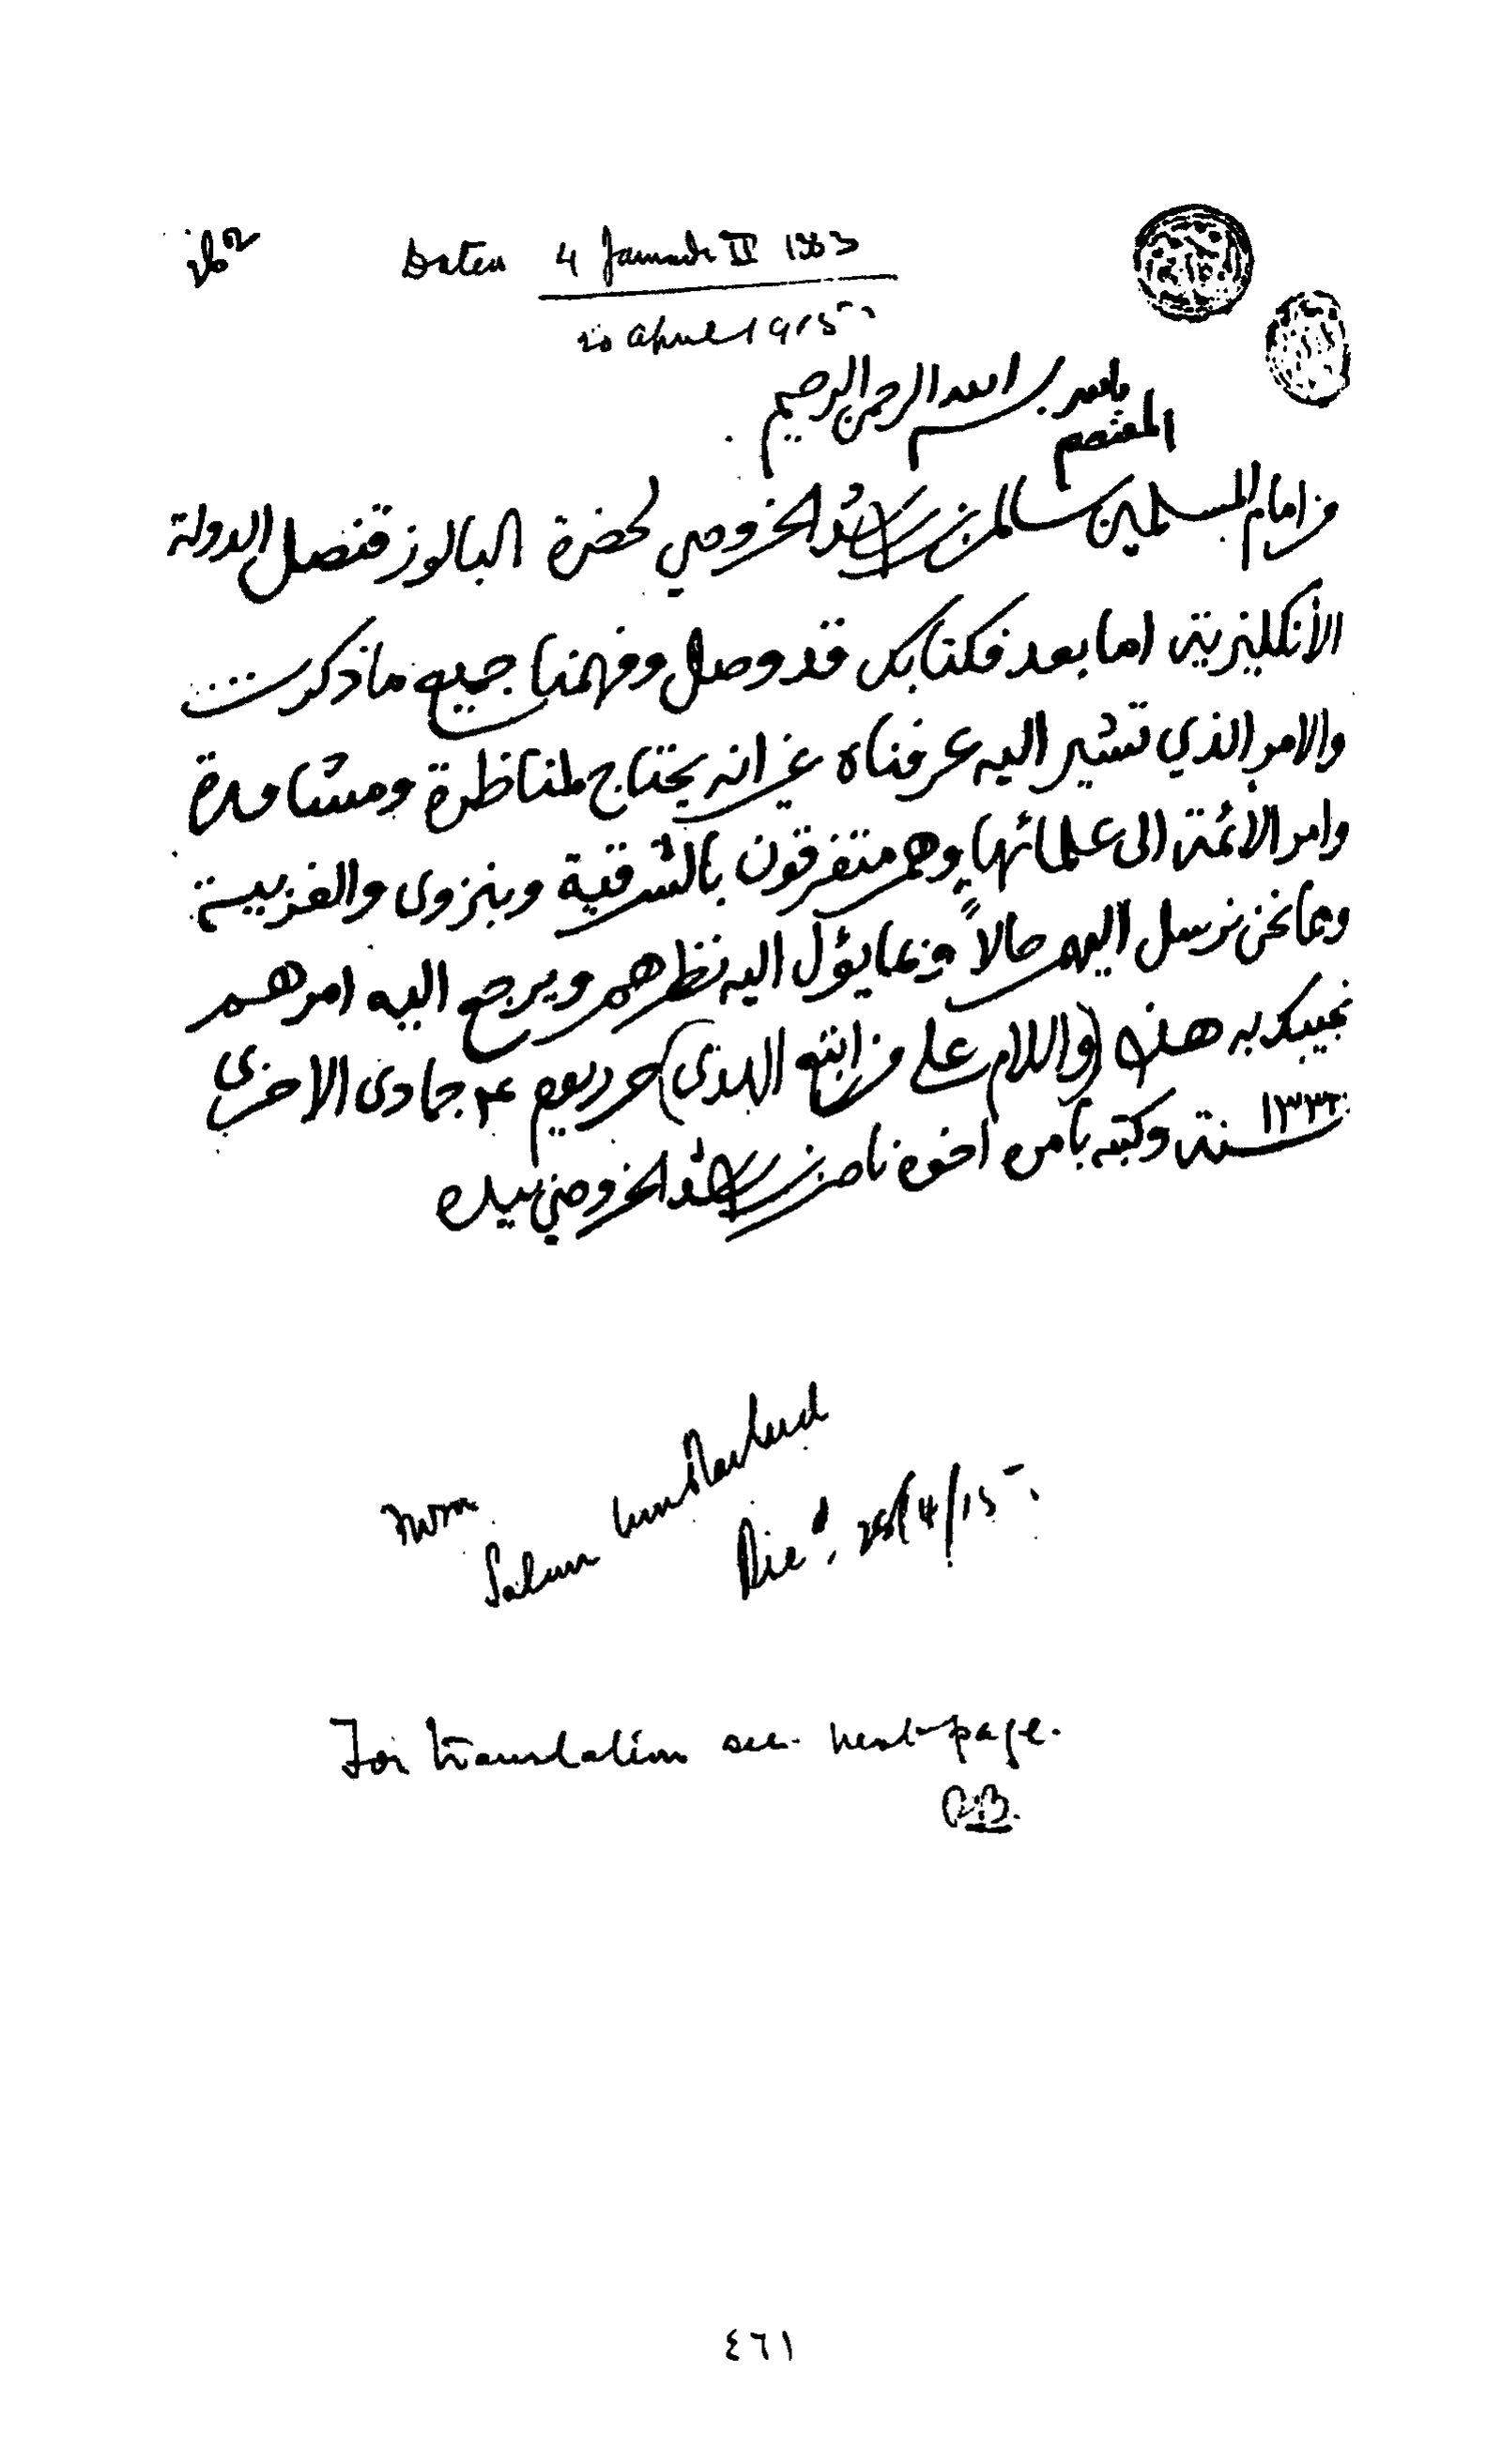 Dated 4 Jamadi II 1333
20 April 1915
بسم الله الرحمن الرحيم
المعتصم بالله
من امام المسلمين سالم بن راشد الخروصي لحضرة الباليوز قنصل الدولة
الانكليزية اما بعد فكتابك قد وصل وفهمنا جميع ما ذكرت
والامر الذي تشير اليه عرفناه غير انه يحتاج لمناظرة ومشاهدة
وامر الائمة الى علمائها وهم متفرقون بالشرقية وبنزوى والغربية
وها نحن نرسل اليهم حالاً وبما يؤل اليه نظرهم ويرجع اليه امرهم
نجيبك به هذا (والسلام على من اتبع الهدى) حرر يوم ٤ جمادى الاخرى
سنة ١٣٣٣ وكتبه بامره اخوه ناصر بن راشد الخروصي بيده
From
Salim bin Rashid
Rec'd. 25/4/15.
For translation see next page.
٤٦١